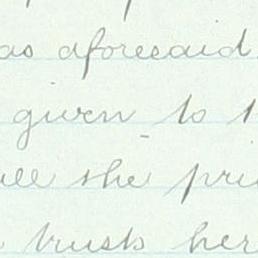 as aforesaid
given to t
she pri
trust her